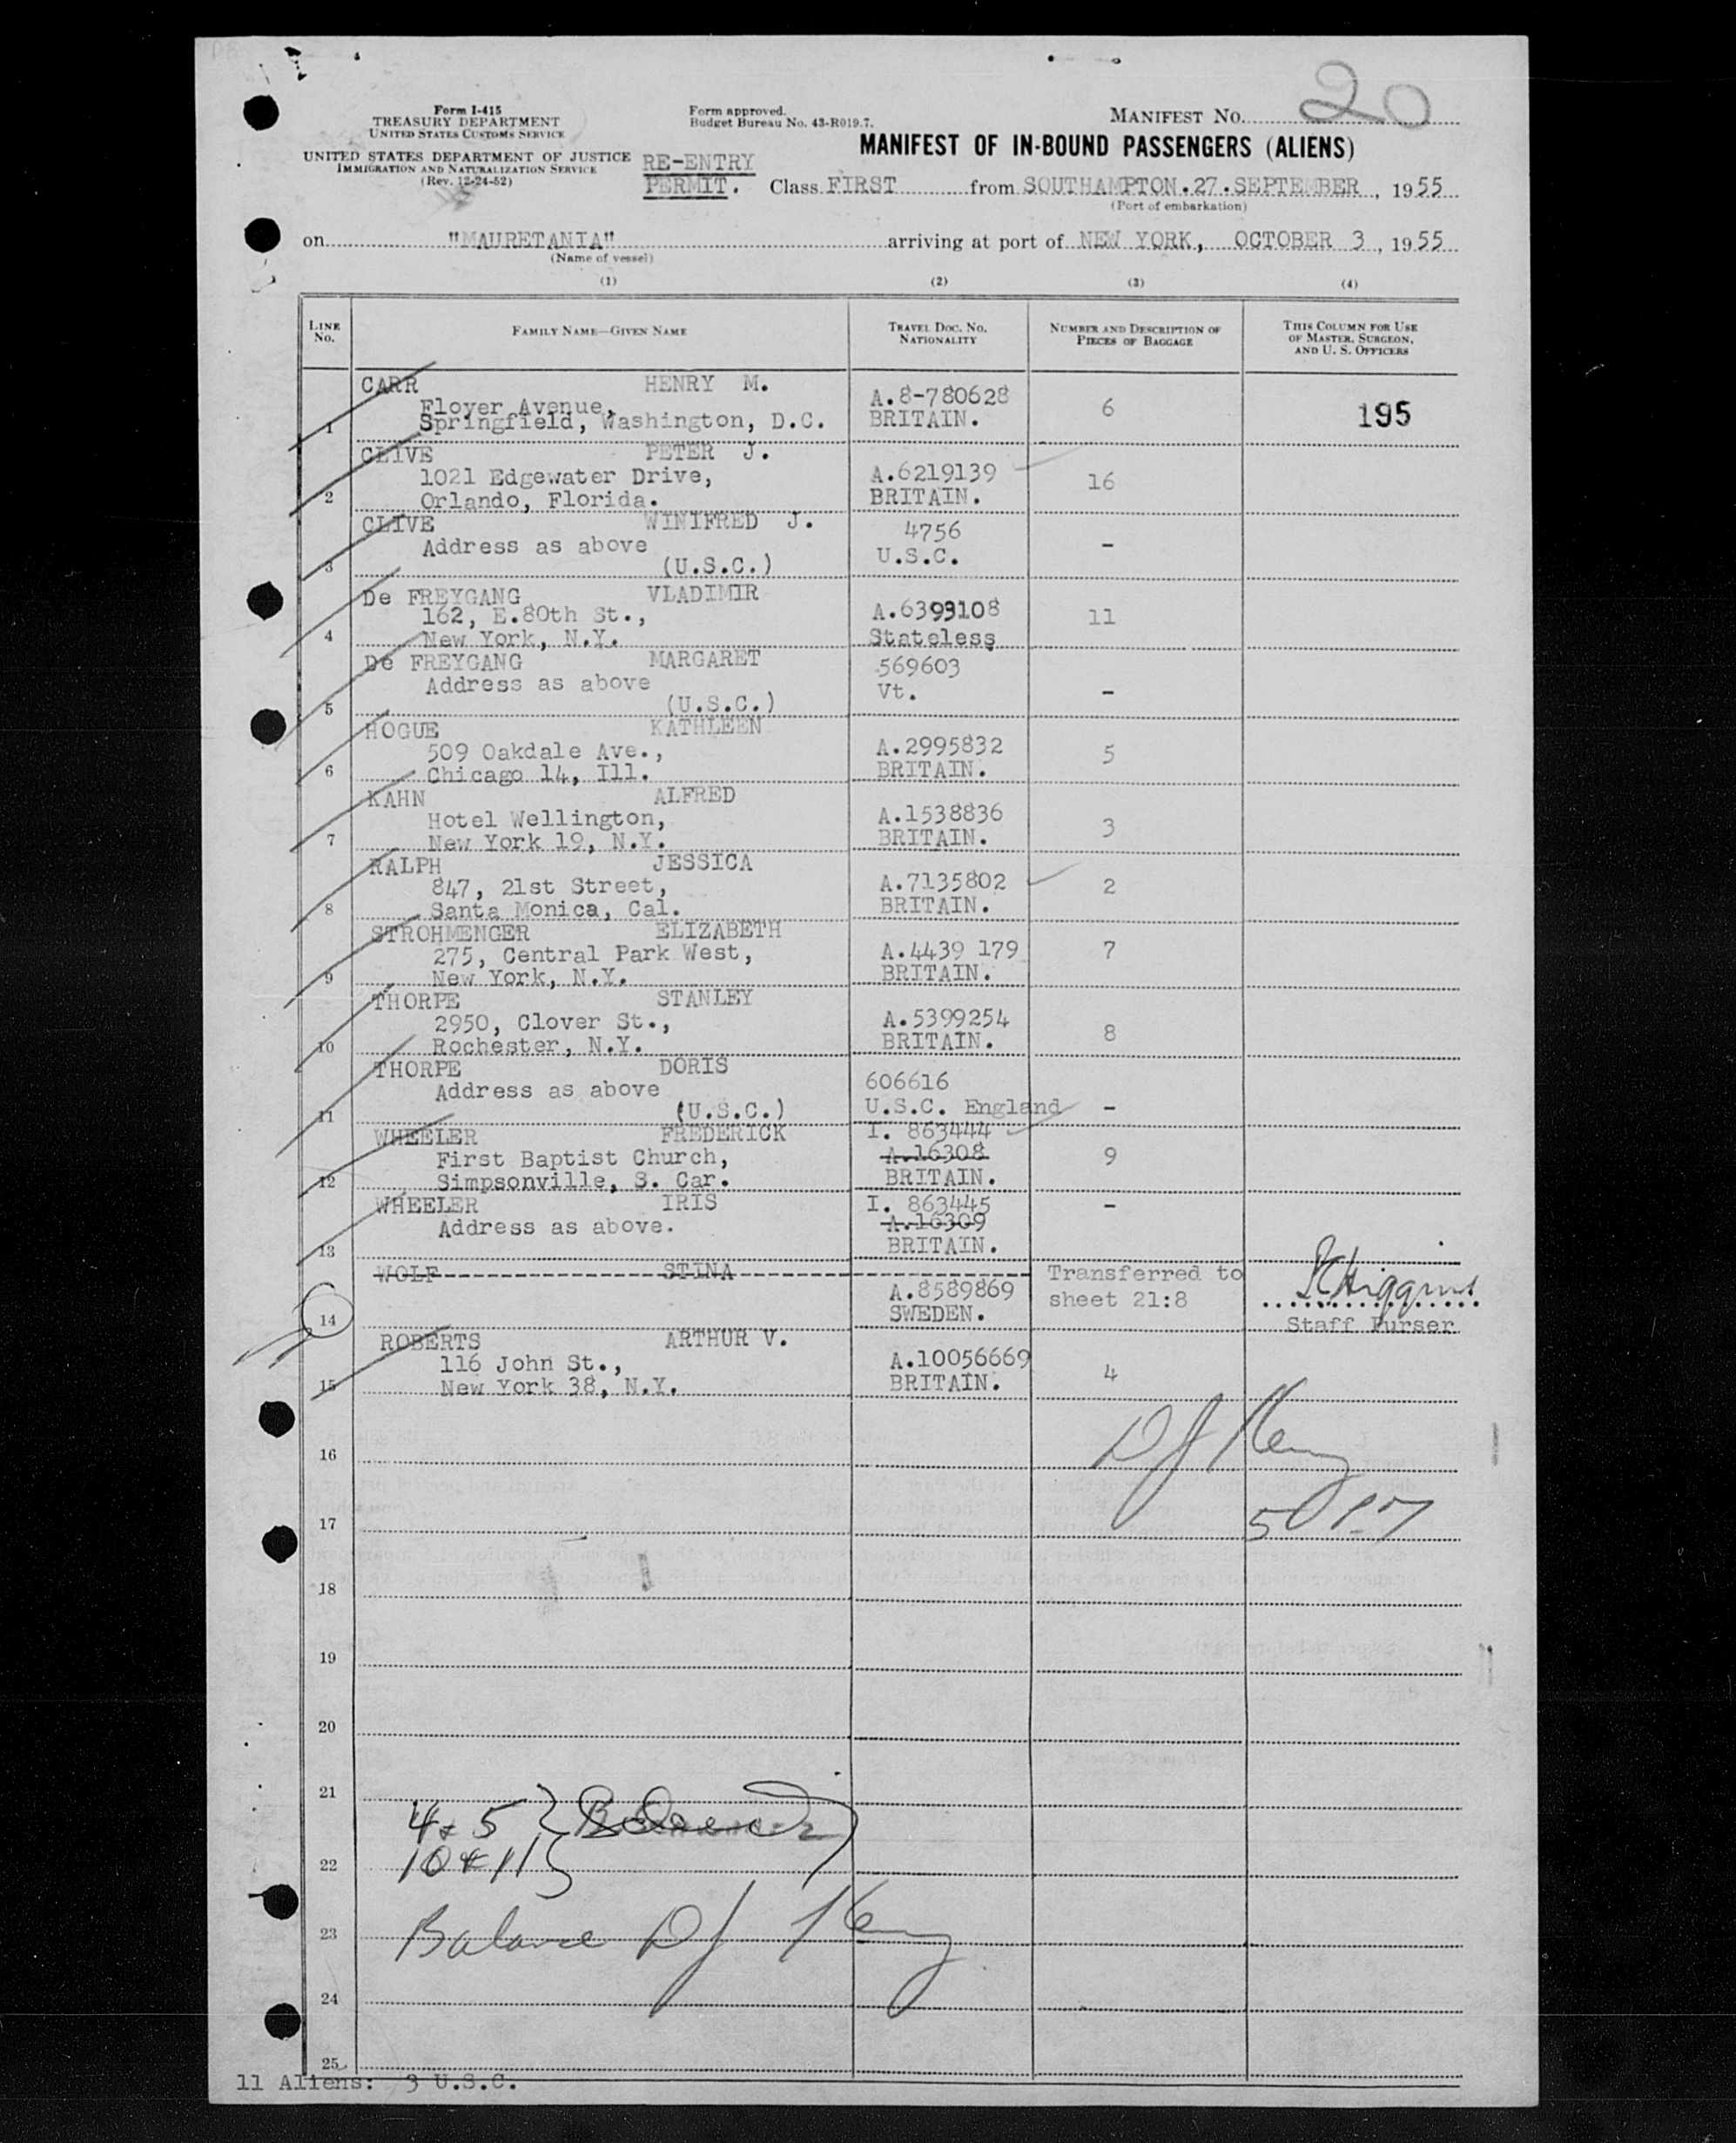 Form I-415
TREASURY DEPARTMENT
UNITED STATES CUSTOMS SERVICE
UNITED STATES DEPARTMENT OF JUSTICE
IMMIGRATION AND NATURALIZATION SERVICE
(Rev. 12-24-52)
Form approved.
Budget Bureau No. 43-R019.7.
MANIFEST NO. 20
MANIFEST OF IN-BOUND PASSENGERS (ALIENS)
RE-ENTRY
PERMIT.
Class FIRST from SOUTHAMPTON.27.SEPTEMBER, 1955
(Port of embarkation)
on "MAURETANIA" arriving at port of NEW YORK, OCTOBER 3, 1955
(Name of vessel)
(1) (2) (3) (4)
LINE No.
FAMILY NAME—GIVEN NAME
TRAVEL DOC. NO. NATIONALITY
NUMBER AND DESCRIPTION OF PIECES OF BAGGAGE
THIS COLUMN FOR USE OF MASTER, SURGEON, AND U. S. OFFICERS
CARR HENRY M.
Floyer Avenue, A.8-780628 6 195
1 Springfield, Washington, D.C. BRITAIN.
CLIVE PETER J.
1021 Edgewater Drive, A.6219139 16
2 Orlando, Florida. BRITAIN.
CLIVE WINIFRED J. 4756
Address as above U.S.C. -
3 (U.S.C.)
De FREYGANG VLADIMIR
162, E.80th St., A.6393108 11
4 New York, N.Y. Stateless
De FREYGANG MARGARET 569603
Address as above Vt. -
5 (U.S.C.)
HOGUE KATHLEEN
509 Oakdale Ave., A.2995832 5
6 Chicago 14, Ill. BRITAIN.
KAHN ALFRED
Hotel Wellington, A.1538836 3
7 New York 19, N.Y. BRITAIN.
RALPH JESSICA
847, 21st Street, A.7135802 2
8 Santa Monica, Cal. BRITAIN.
STROHMENGER ELIZABETH
275, Central Park West, A.4439 179 7
9 New York, N.Y. BRITAIN.
THORPE STANLEY
2950, Clover St., A.5399254 8
10 Rochester, N.Y. BRITAIN.
THORPE DORIS 606616
Address as above
11 (U.S.C.) U.S.C. England -
WHEELER FREDERICK I. 863444
First Baptist Church, A.16308 9
12 Simpsonville, S. Car. BRITAIN.
WHEELER IRIS I. 863445 -
Address as above. A.16309
13 BRITAIN.
WOLF STINA Transferred to
A.8589869 sheet 21:8
14 SWEDEN. Staff Purser
ROBERTS ARTHUR V.
116 John St., A.10056669 4
15 New York 38, N.Y. BRITAIN.
16
17
18
19
20
21
4 & 5
22
10 & 11
23 Balance
24
25
11 Aliens: 3 U.S.C.